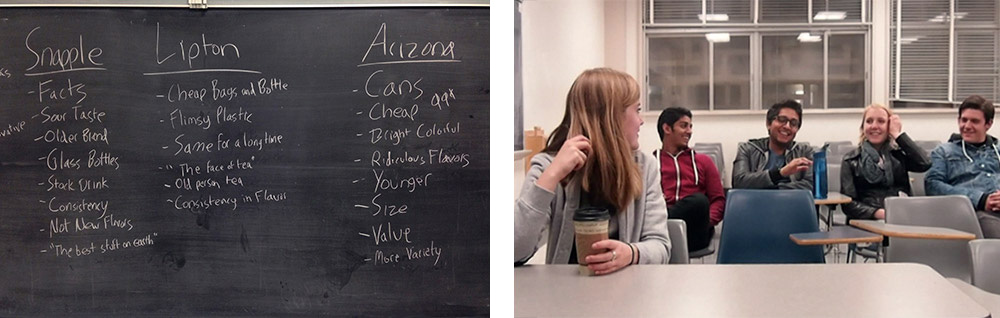 Snapple
- Facts
- Sour Taste
- Older Brand
- Glass Bottles
- Stock Drink
- Consistency
- Not New Flavors
- "The best stuff on earth"
Lipton
- Cheap Bags and Bottle
- Flimsy Plastic
- Same for a long time
- "The face of tea"
- Old person tea
- Consistency in Flavor
Arizona
- Cans
- Cheap 99¢
- Bright Colorful
- Ridiculous Flavors
- Younger
- Size
- Value
- More Variety